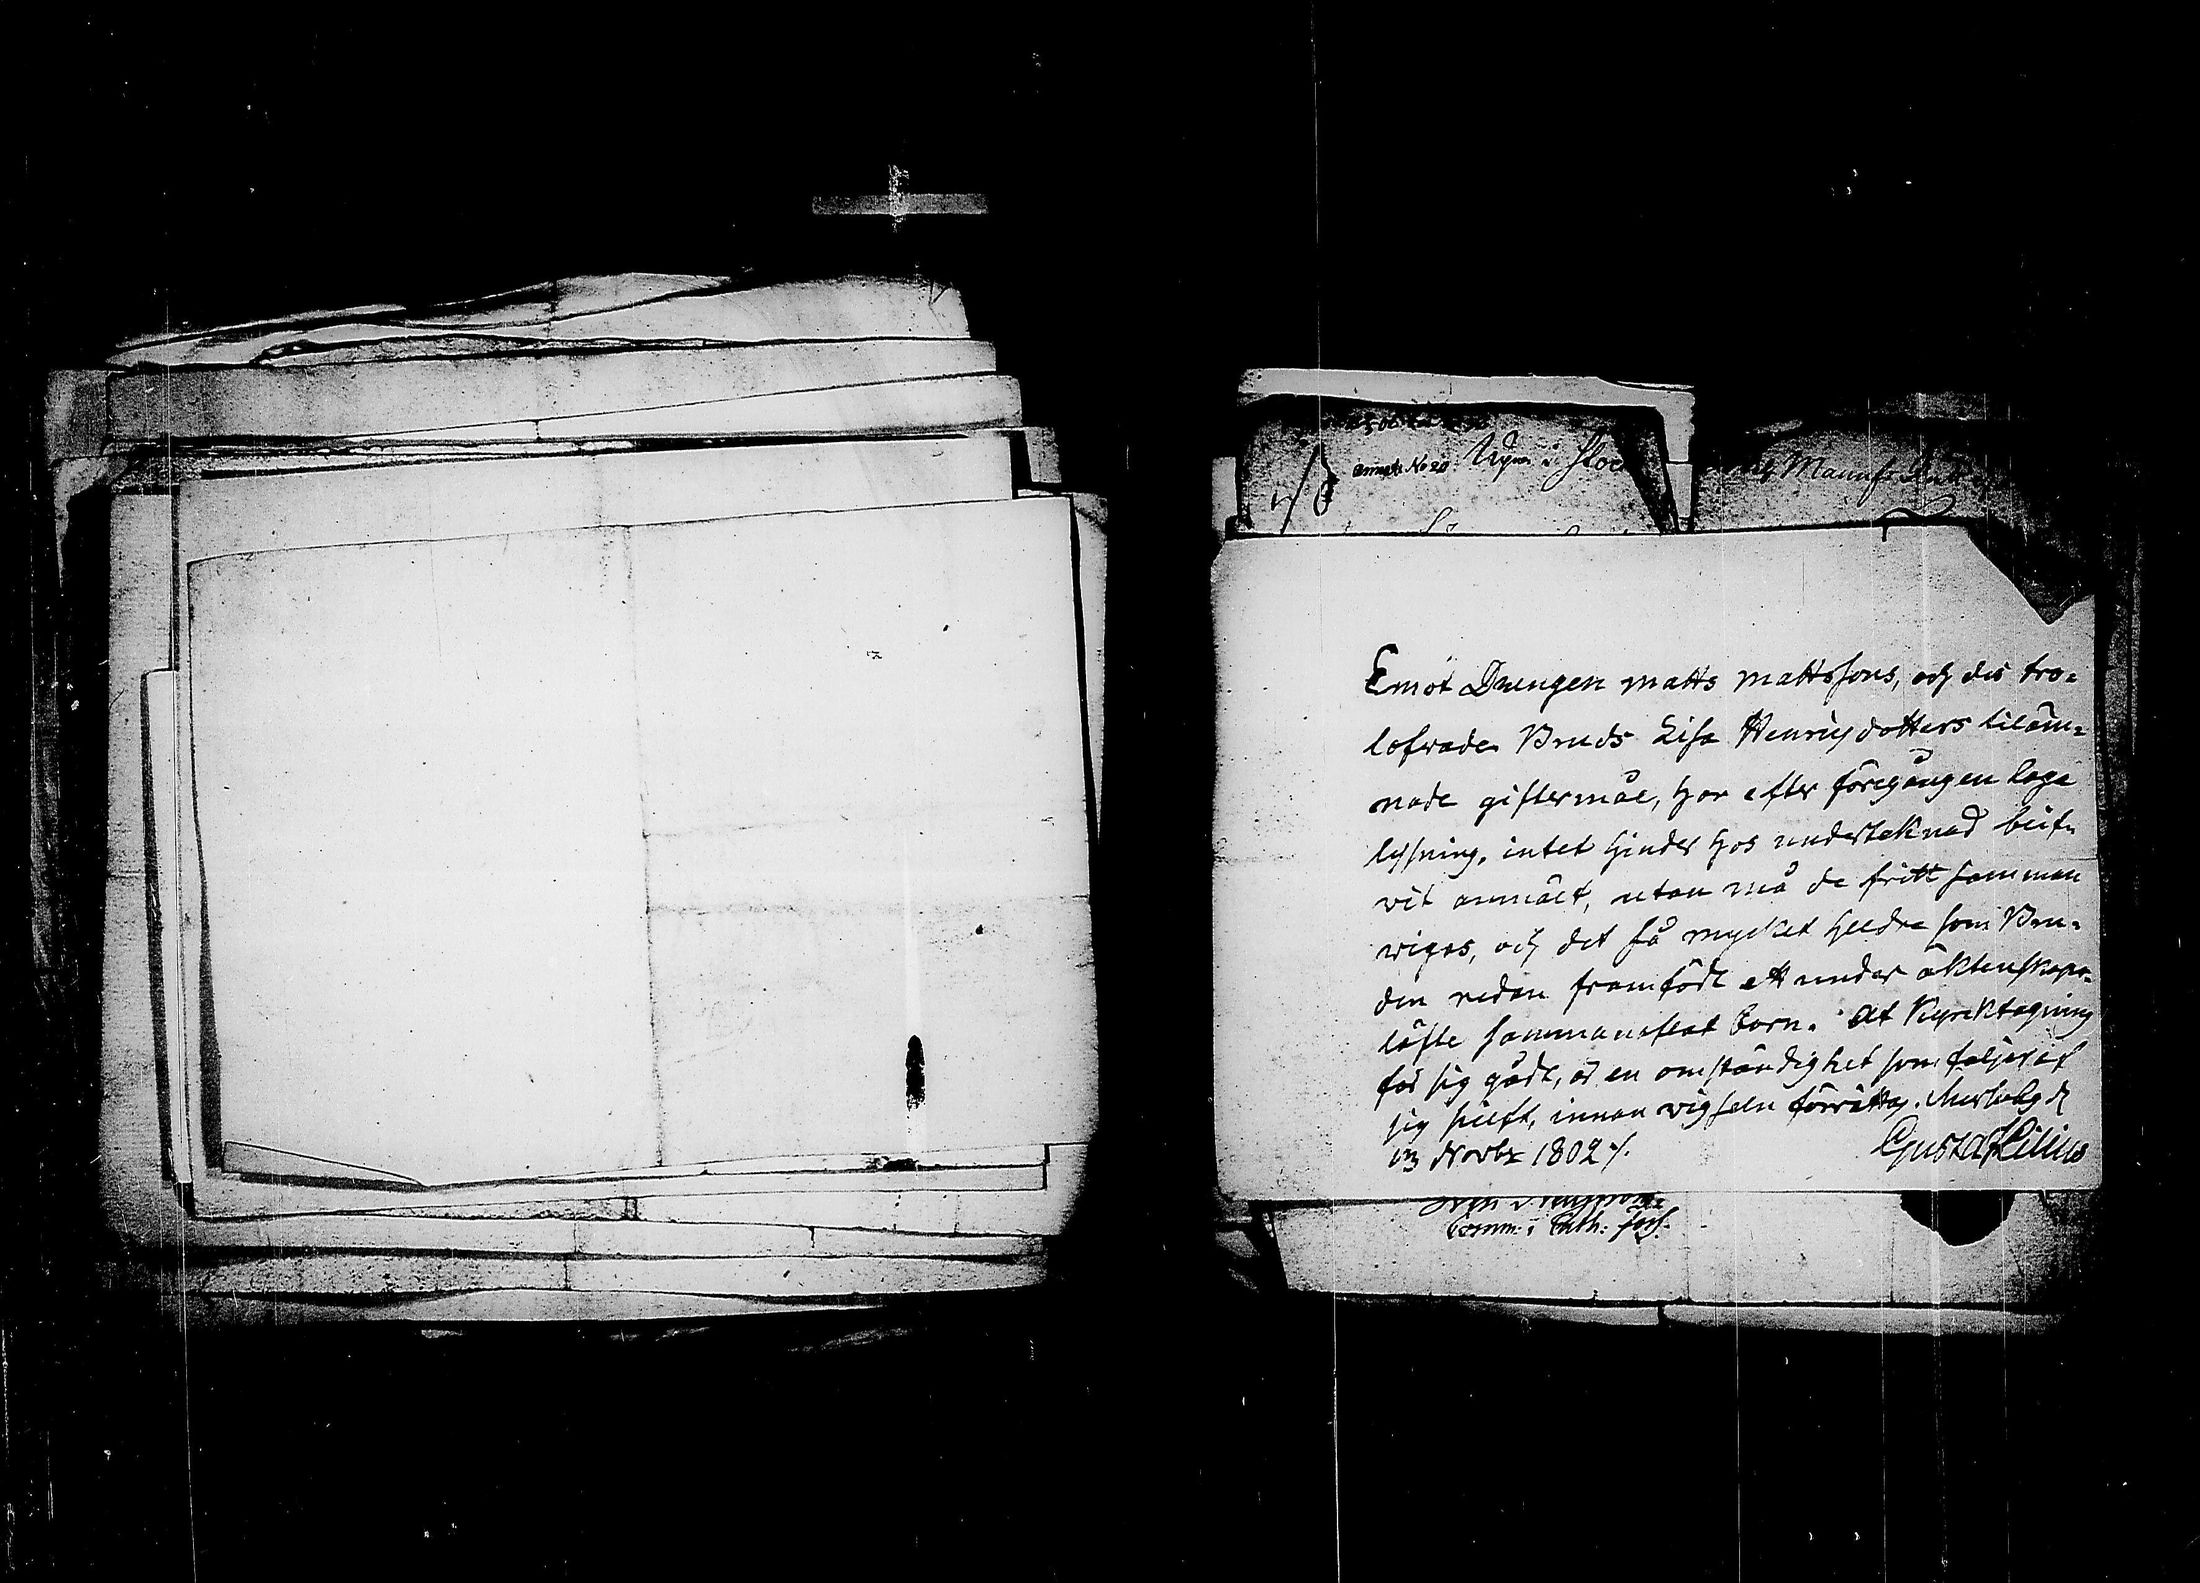 annot. No 20.
Emot Drengen Matts Mattssons, och des tro-
lofvade Bruds Lisa Henricsdotters tiläm-
nade giftermål, har efter föregången laga
lysning, intet hinder hos undertecknad blif-
vit anmält, utan må de fritt samman
wigas, och det så mycket heldre som Bru-
den redan framfödt ett under äktenskaps-
löfte sammanaflat barn. At Kyrktagning
för sig gådt, är en omständighet som följer af
sig sielft, innan vigseln förrättas. d
Novbr 1802 ./.
Gustaf Lilius
Comm: i